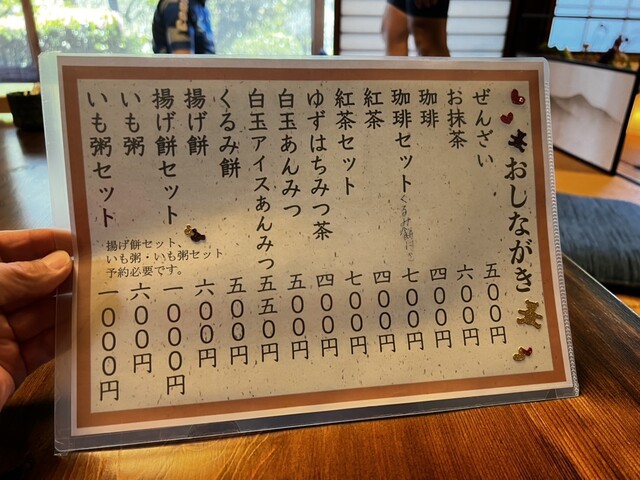 おしながき
ぜんざい 五〇〇円
お抹茶 六〇〇円
珈琲 四〇〇円
珈琲セット 七〇〇円
紅茶 四〇〇円
紅茶セット 七〇〇円
ゆずはちみつ茶 四〇〇円
白玉あんみつ 五〇〇円
白玉アイスあんみつ 五五〇円
くるみ餅 五〇〇円
揚げ餅 六〇〇円
揚げ餅セット 一〇〇〇円
いも粥 六〇〇円
いも粥セット 一〇〇〇円
揚げ餅セット、
いも粥・いも粥セット
予約必要です。